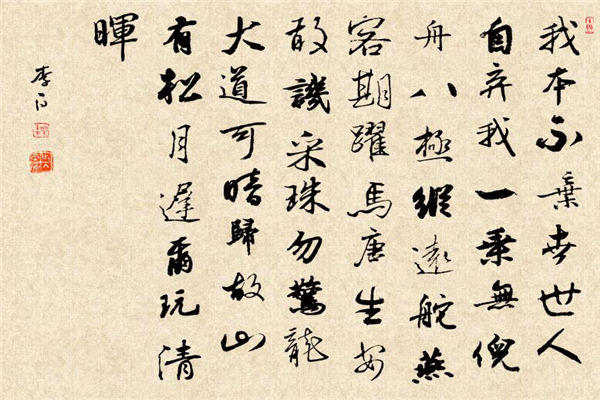 我本不棄世世人
自弃我一乘無倪
舟八極縱遠舵燕
客期躍馬唐生安
敢譏采珠勿驚龍
大道可暗歸故山
有松月遲爾玩清
暉
李